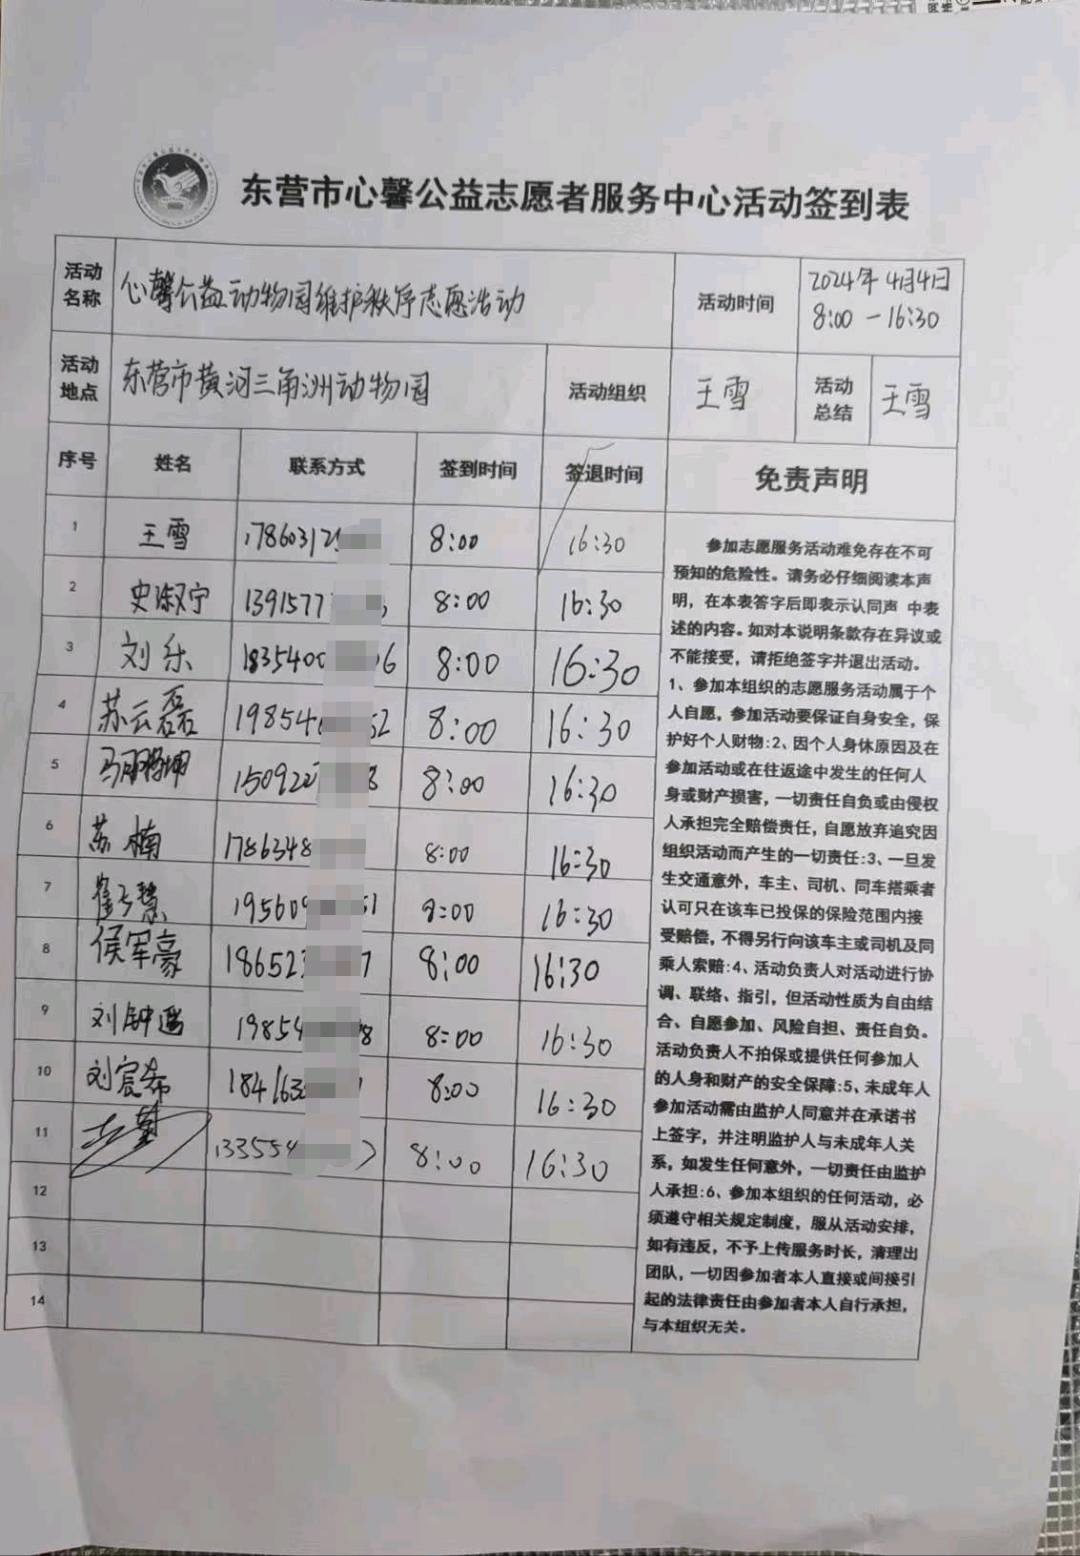 东营市心馨公益志愿者服务中心活动签到表
活动名称 心馨公益动物园维护秩序志愿活动 活动时间 2024年4月4日 8:00-16:30
活动地点 东营市黄河三角洲动物园 活动组织 王雪 活动总结 王雪
序号 姓名 联系方式 签到时间 签退时间 免责声明
1 王雪 1786031 8:00 16:30
2 史淑宁 1391577 8:00 16:30
3 刘乐 1835400 06 8:00 16:30
4 苏云磊 19854 52 8:00 16:30
5 150922 8 8:00 16:30
6 苏楠 1786348 8:00 16:30
7 19560 51 8:00 16:30
8 侯军豪 18652 7 8:00 16:30
9 刘钟 19854 8 8:00 16:30
10 刘宸希 184163 8:00 16:30
11 133554 8:00 16:30
12
13
14
参加志愿服务活动难免存在不可
预知的危险性。请务必仔细阅读本声
明，在本表答字后即表示认同声 中表
述的内容。如对本说明条款存在异议或
不能接受，请拒绝签字并退出活动。
1、参加本组织的志愿服务活动属于个
人自愿，参加活动要保证自身安全，保
护好个人财物:2、因个人身休原因及在
参加活动或在往返途中发生的任何人
身或财产损害，一切责任自负或由侵权
人承担完全赔偿责任，自愿放弃追究因
组织活动而产生的一切责任:3、一旦发
生交通意外，车主、司机、同车搭乘者
认可只在该车已投保的保险范围内接
受赔偿，不得另行向该车主或司机及同
乘人索赔:4、活动负责人对活动进行协
调、联络、指引，但活动性质为自由结
合、自愿参加、风险自担、责任自负。
活动负责人不拍保或提供任何参加人
的人身和财产的安全保障:5、未成年人
参加活动需由监护人同意并在承诺书
上签字，并注明监护人与未成年人关
系，如发生任何意外，一切责任由监护
人承担:6、参加本组织的任何活动，必
须遵守相关规定制度，服从活动安排，
如有违反，不予上传服务时长，清理出
团队，一切因参加者本人直接或间接引
起的法律责任由参加者本人自行承担，
与本组织无关。